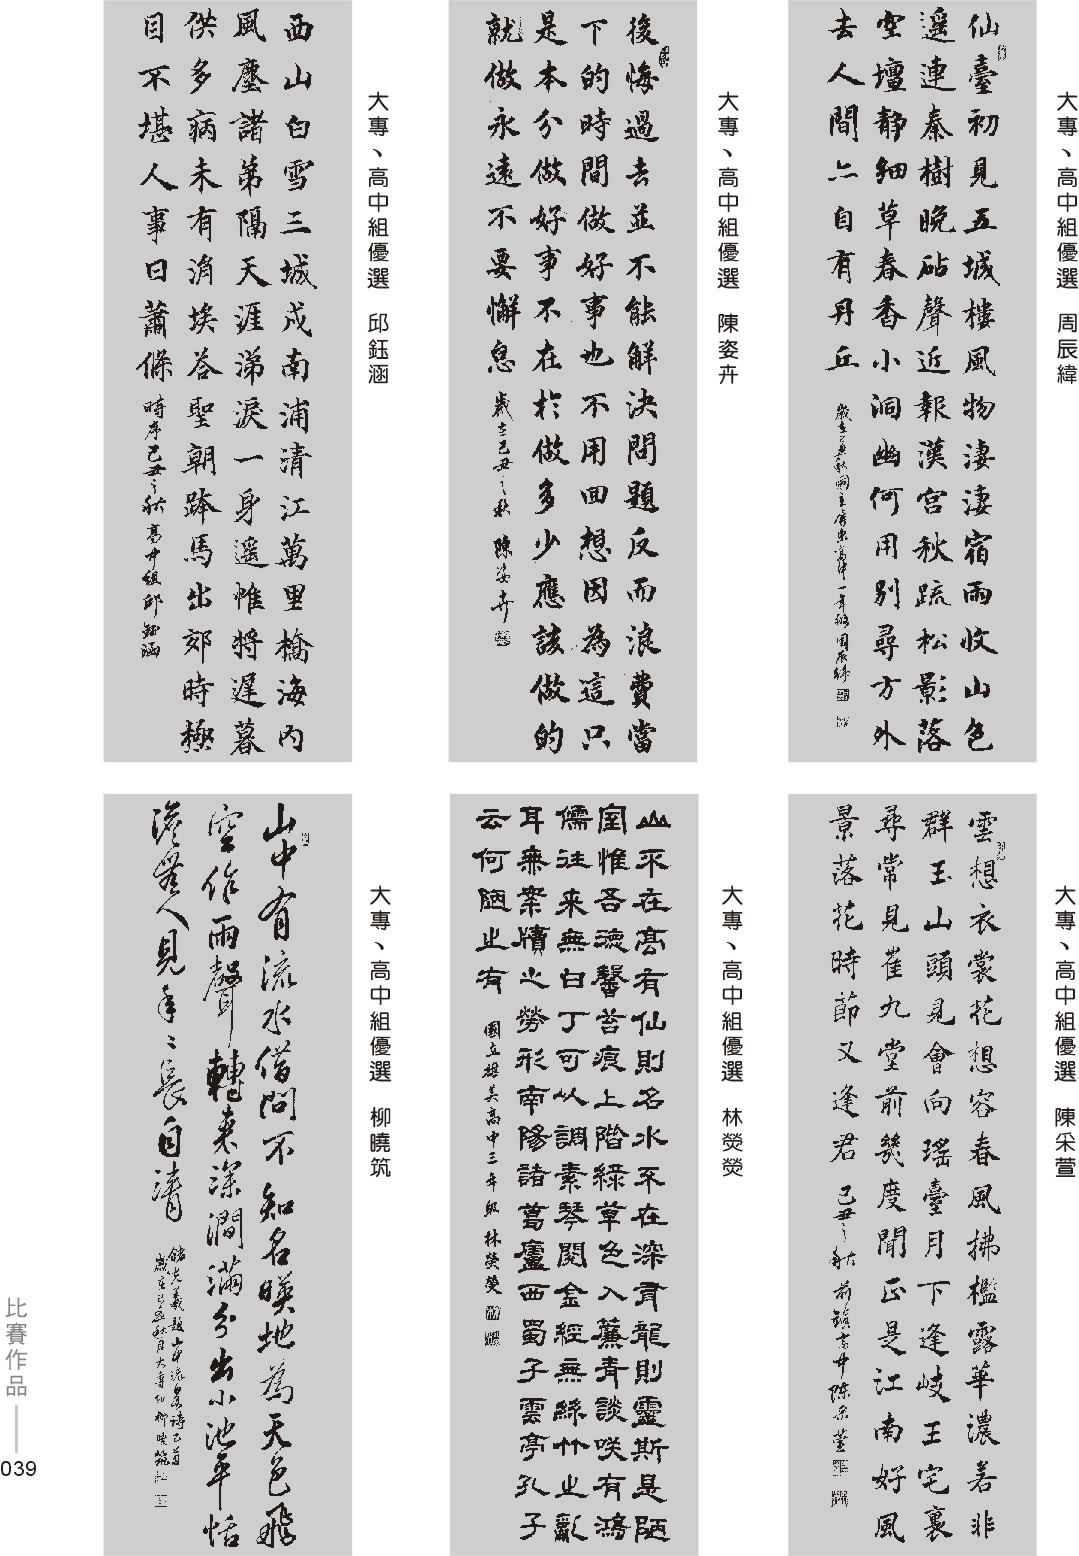 大專、高中組優選　周辰緯
仙臺初見五城樓風物淒淒宿雨收山色
遥連秦樹晚砧聲近報漢宮秋疏松影落
空壇靜細草春香小洞幽何用別尋方外
去人間亦自有丹丘
周辰緯
大專、高中組優選　陳姿卉
後悔過去並不能解決問題反而浪費當
下的時間做好事也不用回想因為這只
是本分做好事不在於做多少應該做的
就做永遠不要懈怠 歲在己丑之秋 陳姿卉
大專、高中組優選　邱鈺涵
西山白雪三城戍南浦清江萬里橋海內
風塵諸弟隔天涯涕淚一身遥惟將遲暮
供多病未有涓埃答聖朝跨馬出郊時極
目不堪人事日蕭條 時序己丑之秋 高中組邱鈺涵
大專、高中組優選　陳采萱
雲想衣裳花想容春風拂檻露華濃若非
群玉山頭見會向瑤臺月下逢岐王宅裏
尋常見崔九堂前幾度聞正是江南好風
景落花時節又逢君 己丑之秋 前鎮高中陳采萱
大專、高中組優選　林熒熒
山不在高有仙則名水不在深有龍則靈斯是陋
室惟吾德馨苔痕上階綠草色入簾青談笑有鴻
儒往來無白丁可以調素琴閱金經無絲竹之亂
耳無案牘之勞形南陽諸葛廬西蜀子雲亭孔子
云何陋之有 國立旗美高中三年級 林熒熒
大專、高中組優選　柳曉筑
山中有流水借問不知名暎地為天色飛
空作雨聲轉來深澗滿分出小池平恬
澹無人見年〻長自清
儲光羲題山中流泉詩
歲在己丑秋月大專組柳曉筑
比賽作品
039